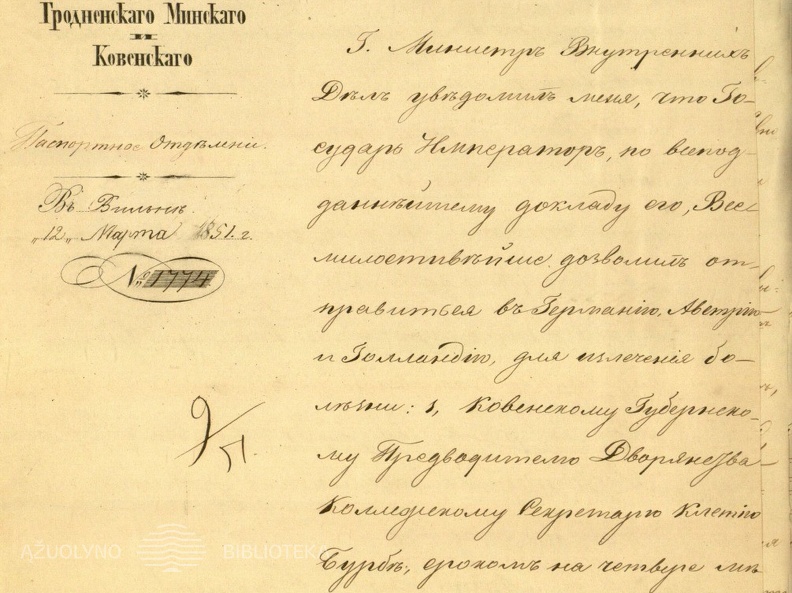 Гродненскаго Минскаго
и
Ковенскаго
Паспортное Отдѣленіе.
Въ Вильнѣ.
„12„ Марта 1851. г.
№ 1774
Г. Министръ Внутреннихъ
Дѣлъ увѣдомилъ меня, что Го-
сударь Императоръ, по всепод-
даннѣйшему докладу его, Все-
милостивѣйше дозволилъ от-
правиться въ Германію, Австрію
и Голландію, для излеченія бо-
лѣзни: 1, Ковенскому Губернско-
му Предводителю Дворянства
Коллежскому Секретарю
Бурбѣ, срокомъ на четыре мѣ-
AŽUOLYNO BIBLIOTEKA